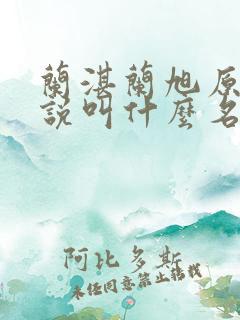 蘭湛蘭旭原
說叫什麼名
阿比多斯
未經同意禁止轉載